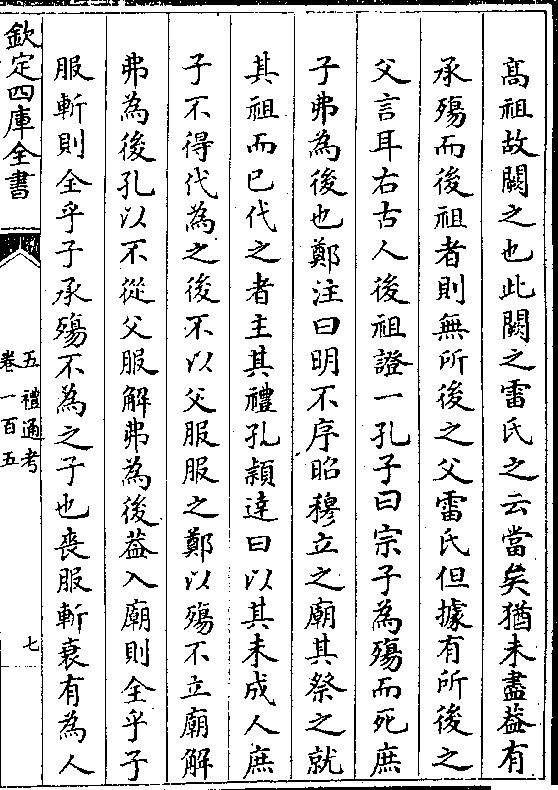 髙祖故闕之也此闕之雷氏之云當矣猶未盡葢有
承殤而後祖者則無所後之父雷氏但據有所後之
父言耳右古人後祖證一孔子曰宗子為殤而死庶
子弗為後也鄭注曰明不序昭穆立之廟其祭之就
其祖而已代之者主其禮孔頴達曰以其未成人庶
子不得代為之後不以父服服之鄭以殤不立廟解
弗為後孔以不從父服解弗為後葢入廟則全乎子
服斬則全乎子承殤不為之子也喪服斬衰有為人
欽定四庫全書
五禮通考
卷一百五
七